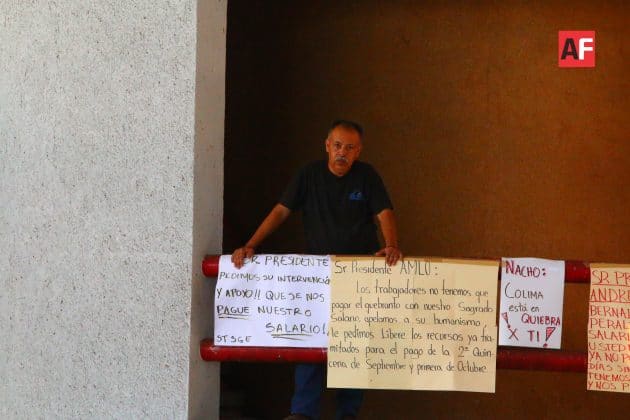 AF
SR PRESIDENTE
PEDIMOS SU INTERVENCIÓN
Y APOYO!! QUE SE NOS
PAGUE NUESTRO
SALARIO!
STSGE
Sr Presidente AMLO:
Los trabajadores no tenemos que
pagar el quebranto con nuestro Sagrado
Salario, apelamos a su humanismo,
le pedimos Libere los recursos ya tra-
mitados para el pago de la 2ª Quin-
cena de Septiembre y primera de Octubre.
NACHO:
COLIMA
está en
¡QUIEBRA
X TI!
SR PR
ANDR
BERNA
PERAL
SALARI
USTED
YA NO P
DÍAS SIN
TENEMOS
Y NOS P